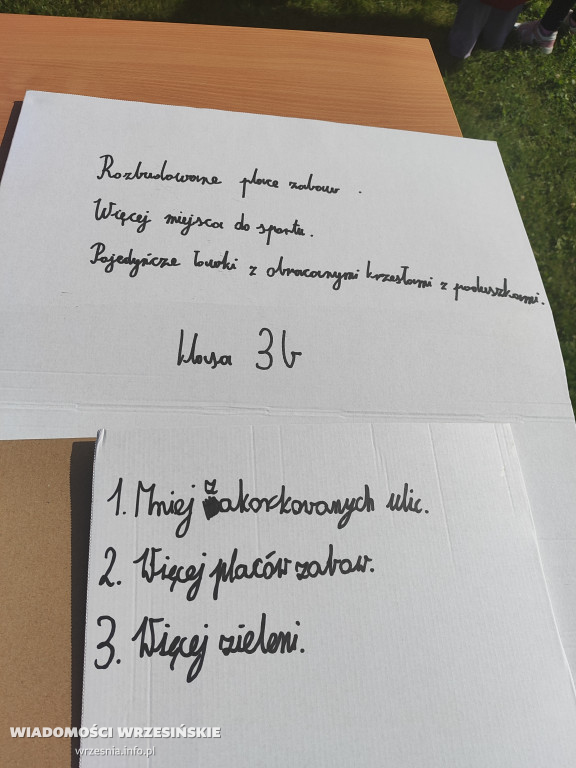 Rozbudowane place zabaw.
Więcej miejsca do sportu.
Pojedyńcze ławki z obracanymi krzesłami z poduszkami.
klasa 3b
1. Mniej zakorkovanych ulic.
2. Więcej placów zabaw.
3. Więcej zieleni.
WIADOMOŚCI WRZESIŃSKIE
wrzesnia.info.pl